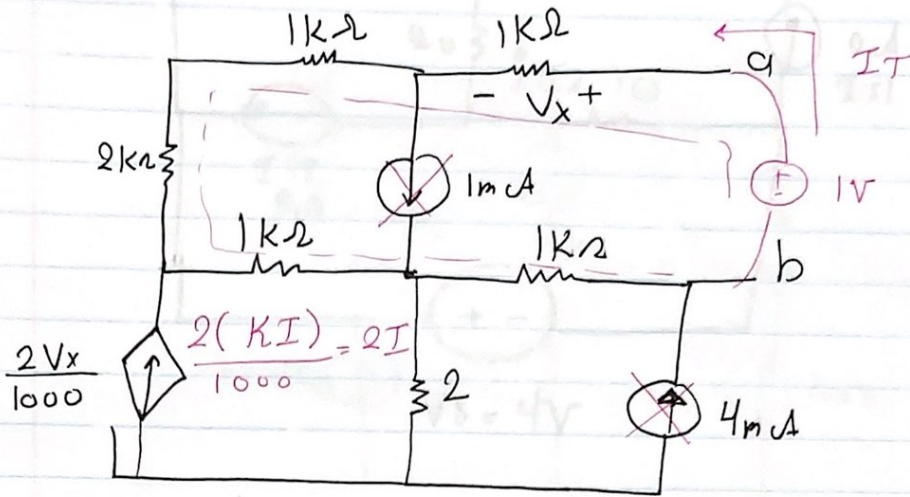 1KΩ 1KΩ
a IT
- Vx +
2KΩ
1mA
1V
1KΩ 1KΩ
b
2Vx/1000
2(KI)/1000 = 2I
2
4mA